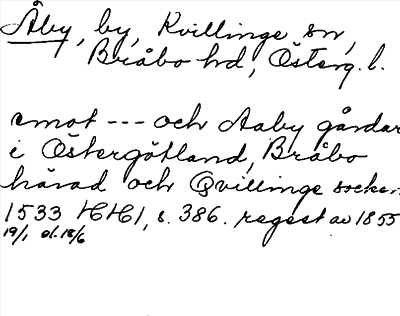 Åby, by, Kvillinge sn,
Bråbo hd, Österg. l.
emot --- och Aaby gårdar
i Östergötland, Bråbo
härad och Qvillinge socken
1533 HH1, s. 386. regest av 1855
19/1 el. 18/6